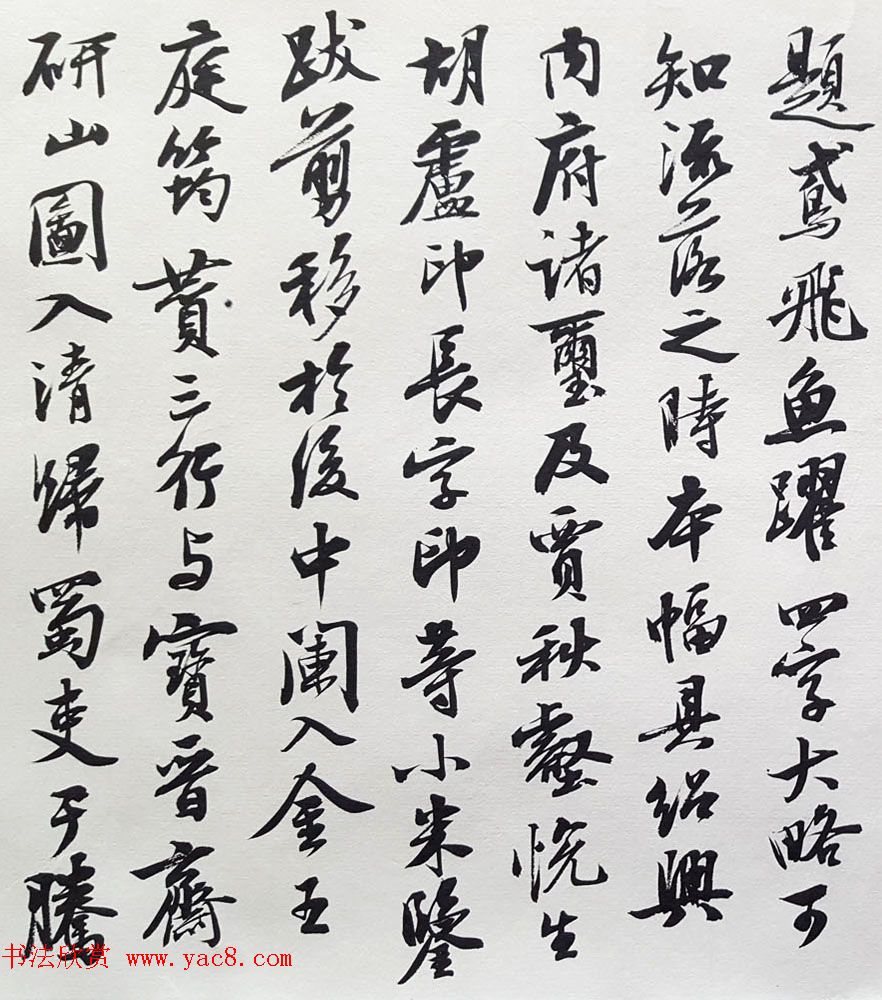 題鳶飛魚躍四字大略可
知流落之時本幅具紹興
内府諸璽及賈秋壑悅生
胡盧印長字印等小米鑒
跋剪移於後中闌入金王
庭筠贊三行与寶晋齋
研山圖入清歸蜀吏于騰
书法欣赏 www.yac8.com